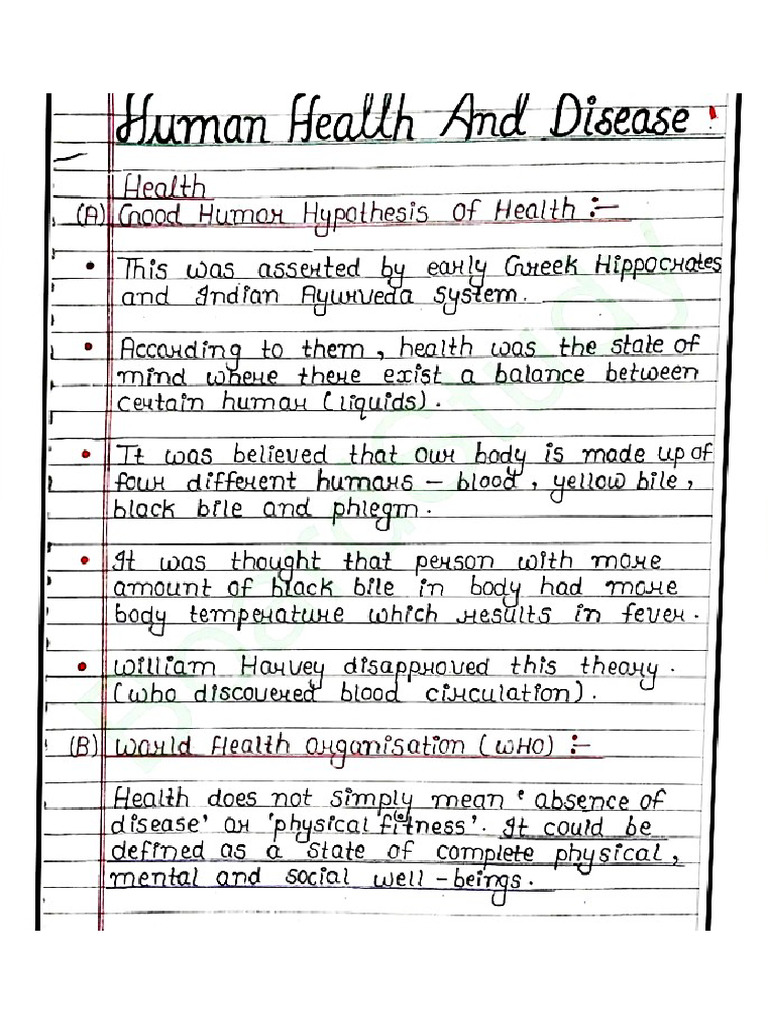 Human Health And Disease :
Health
(A) Good Humor Hypothesis of Health :-
• This was asserted by early Greek Hippocrates
and Indian Ayurveda System.
• According to them, health was the state of
mind where there exist a balance between
certain humar (liquids).
• It was believed that our body is made up of
four different humars - blood, yellow bile,
black bile and phlegm.
• It was thought that person with more
amount of black bile in body had more
body temperature which results in fever.
• William Harvey disapproved this theory.
(who discovered blood circulation).
(B) World Health Organisation (WHO) :-
Health does not simply mean 'absence of
disease' or 'physical fitness'. It could be
defined as a state of complete physical,
mental and social well-beings.
BoardGStudy